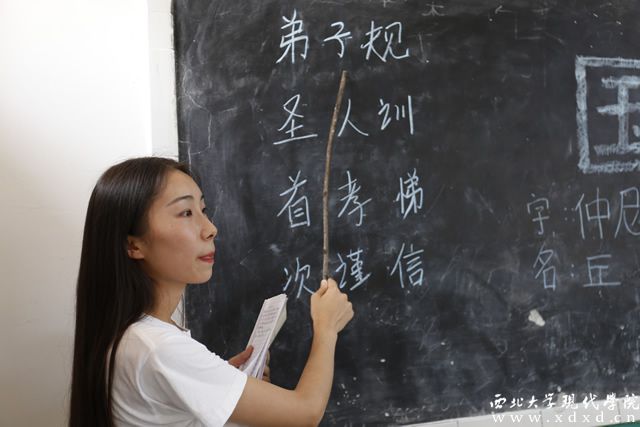 弟子规
圣人训
首孝悌
次谨信
国
字:仲尼
名:丘
西北大学现代学院
www.xdxd.cn